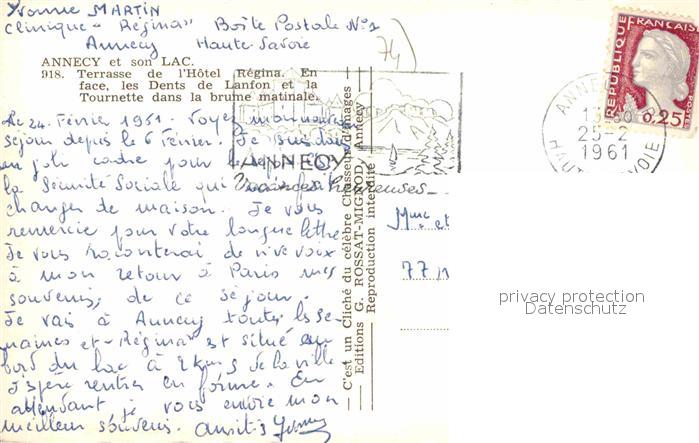 Yvonne MARTIN
Clinique "Régina" Boîte Postale N°1
Annecy Haute Savoie
74)
ANNECY et son LAC.
918. Terrasse de l'Hôtel Régina. En
face, les Dents de Lanfon et la
Tournette dans la brume matinale.
Le 24 Février 1961. Voyez mon nouveau
séjour depuis le 6 Février. Je suis dans
un joli cadre pour
la Sécurité Sociale qui
changer de maison. Je vous
remercie pour votre longue lettre
Je vous raconterai de vive voix
à mon retour à Paris mes
souvenirs de ce séjour.
Je vais à Annecy toutes les se-
maines et "Régina" est situé au
bord du lac à 2 kms de la ville
J'espère rentrer en forme. En
attendant je vous envoie mon
meilleur souvenir. Amitiés Yvonne
ANNECY
Vacances heureuses
C'est un Cliché du célèbre Chasseur d'images
Editions G. ROSSAT-MIGNOD, Annecy
Reproduction interdite
REPUBLIQUE FRANÇAISE
0,25
ANNECY R.P.
25-2
1961
HAUTE SAVOIE
Mme et
77
privacy protection
Datenschutz